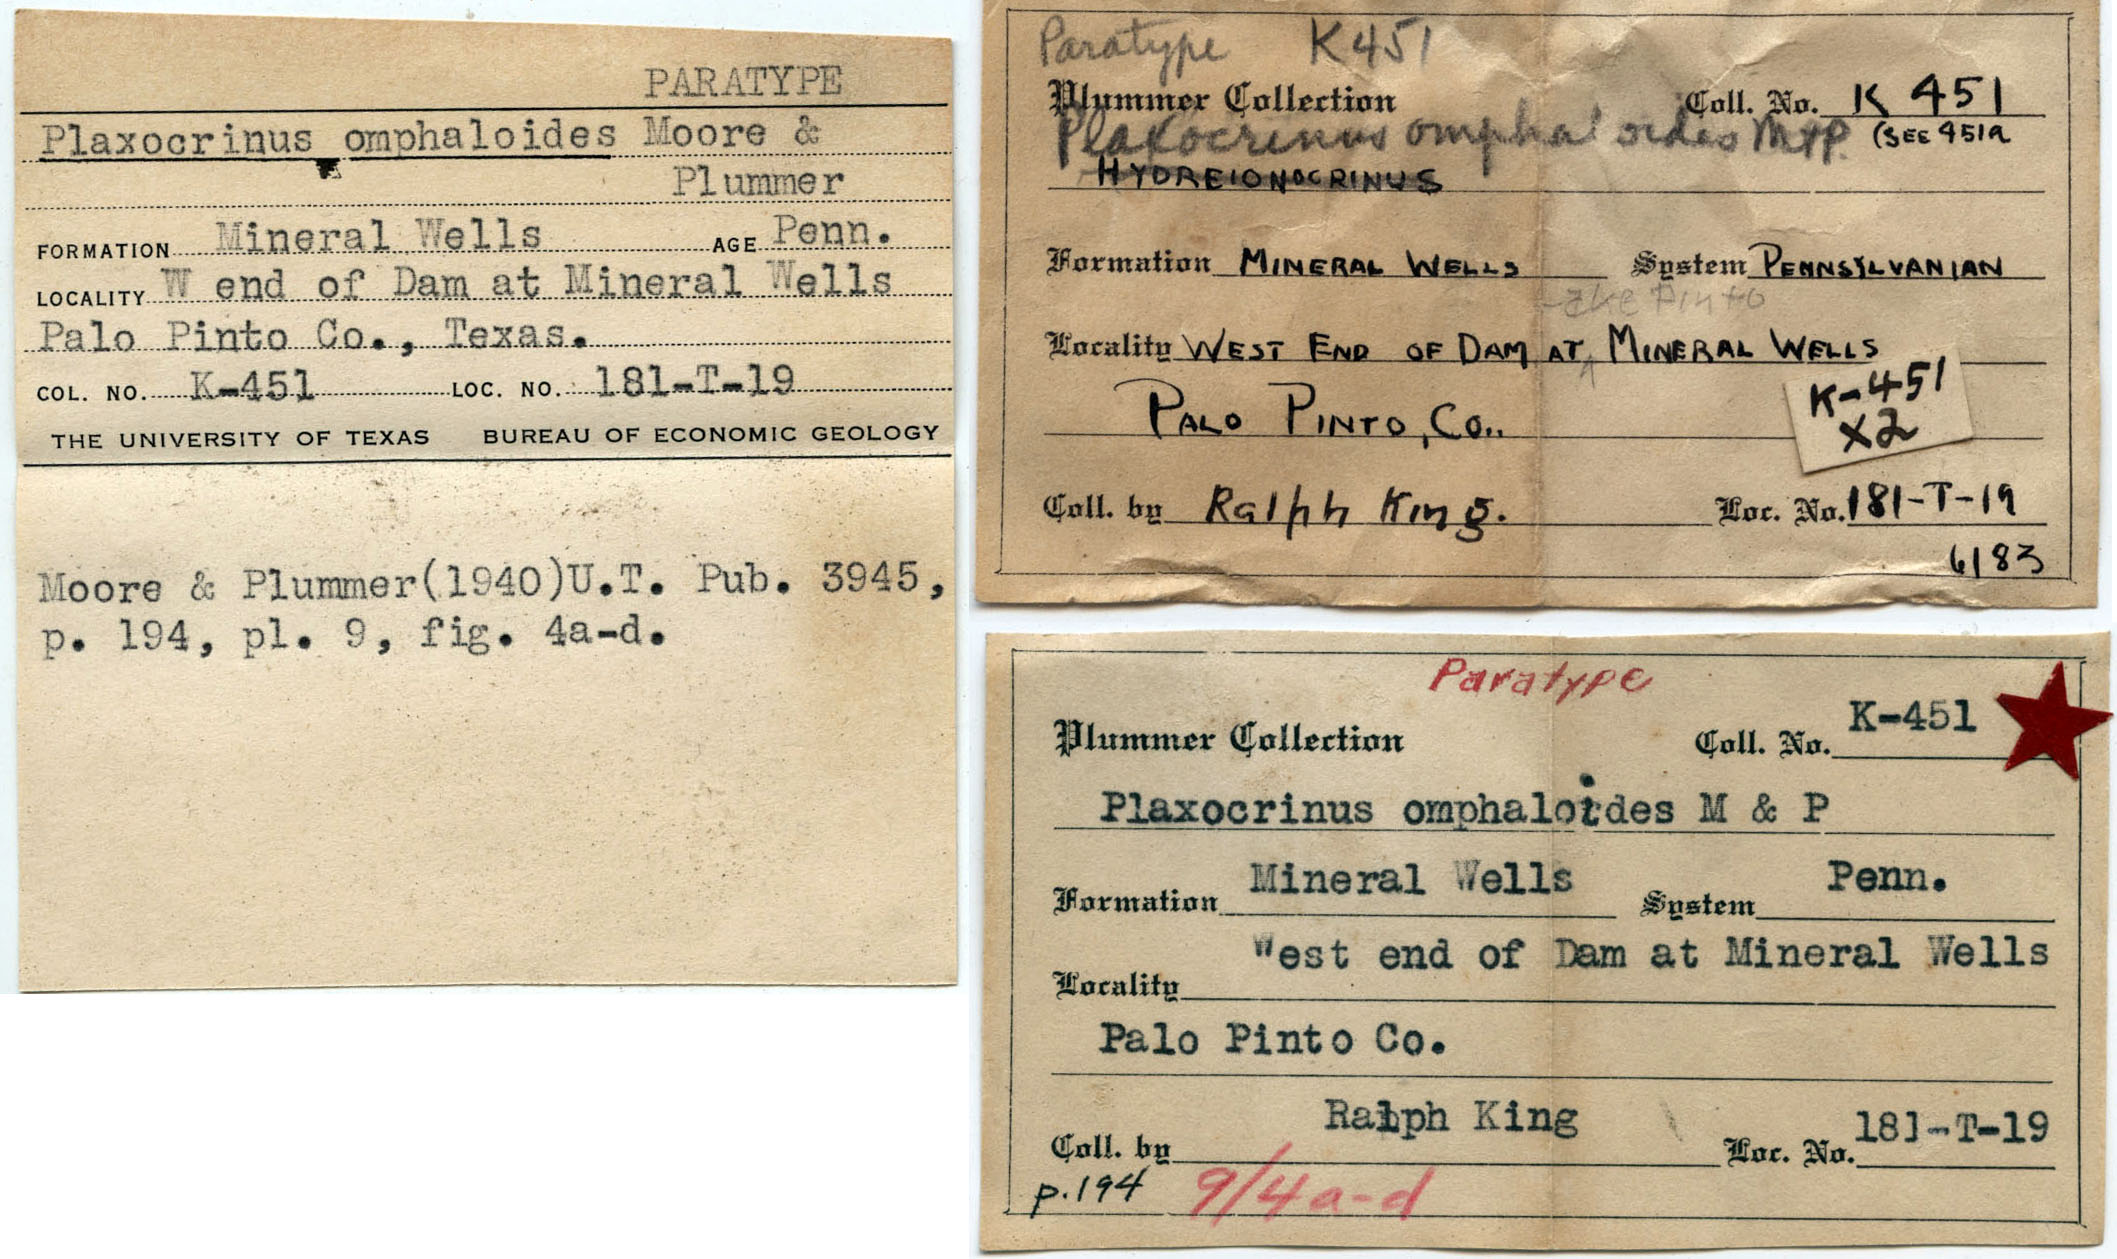 PARATYPE
Plaxocrinus omphaloides Moore &
Plummer
FORMATION Mineral Wells AGE Penn.
LOCALITY W end of Dam at Mineral Wells
Palo Pinto Co., Texas.
COL. NO. K-451 LOC. NO. 181-T-19
THE UNIVERSITY OF TEXAS BUREAU OF ECONOMIC GEOLOGY
Moore & Plummer(1940)U.T. Pub. 3945,
p. 194, pl. 9, fig. 4a-d.
Paratype K451
Plummer Collection Coll. No. K 451
Plaxocrinus omphaloides M+P. (SEE 451a
HYDREIONOCRINUS
Formation MINERAL WELLS System PENNSYLVANIAN
Pinto
Locality WEST END OF DAM AT MINERAL WELLS
K-451
X2
PALO PINTO, CO..
Coll. by Ralph King. Loc. No. 181-T-19
6183
Paratype
Plummer Collection Coll. No. K-451
Plaxocrinus omphaloides M & P
Formation Mineral Wells System Penn.
Locality West end of Dam at Mineral Wells
Palo Pinto Co.
Coll. by Ralph King Loc. No. 181-T-19
p.194 9/4a-d